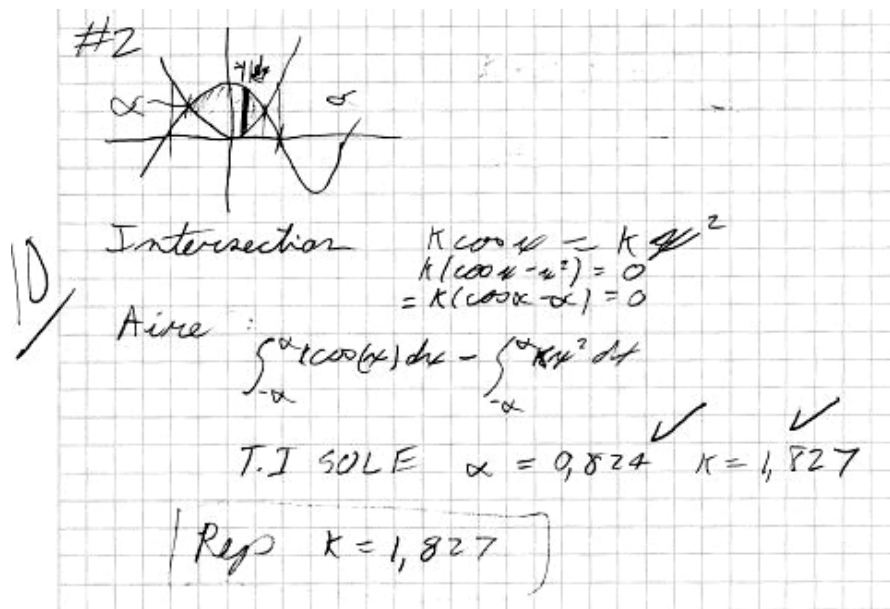 #2
α
Intersection K cos x = K x²
K(cos x - x²) = 0
= K(cos α - α) = 0
10/
Aire :
∫_{-α}^{α} K cos(x) dx - ∫_{-α}^{α} K x² dx
T.I SOLE α = 0,824 K = 1,827
Rep K = 1,827